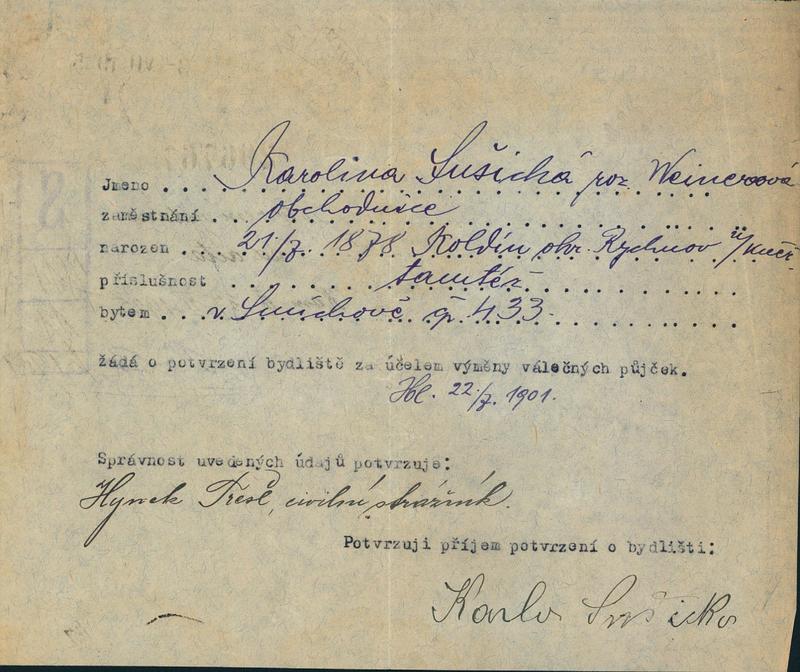 Jmeno ... Karolina Sušická roz. Weinerová
zaměstnání ... obchodnice
narozen ... 21/7. 1878 Koldín okr. Rychnov n/Kněž.
příslušnost tamtéž
bytem ... v Smíchově čp. 433.
žádá o potvrzení bydliště za účelem výměny válečných půjček.
Hl. 22./7. 1901.
Správnost uvedených údajů potvrzuje:
Hynek Trešl, civilní strážník.
Potvrzuji příjem potvrzení o bydlišti:
Karla Sušicka